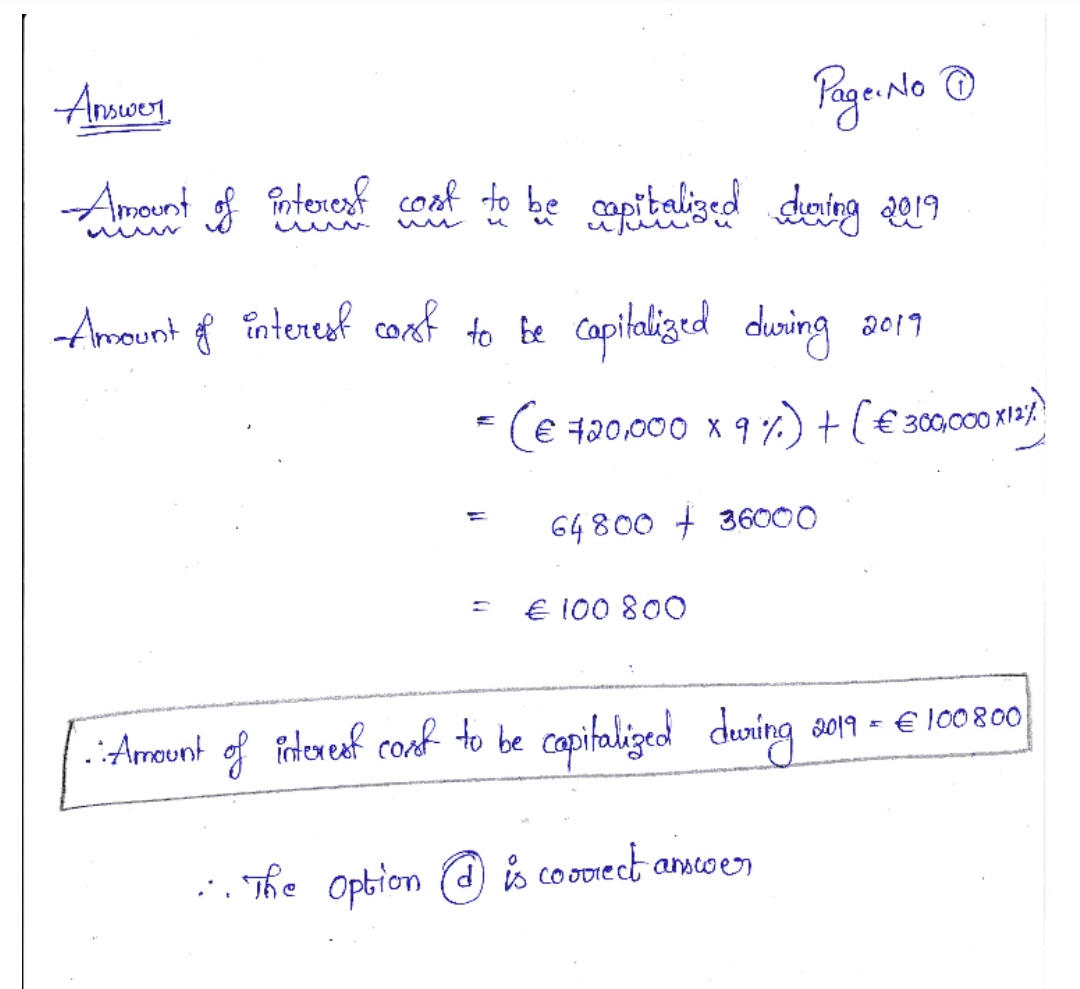 Answer
Page.No ①
Amount of interest cost to be capitalized during 2019
Amount of interest cost to be capitalized during 2019
= (€ 720,000 x 9 %) + (€ 300,000 x 12%)
= 64800 + 36000
= € 100 800
∴ Amount of interest cost to be capitalized during 2019 = € 100800
∴ The option ⓓ is correct answer